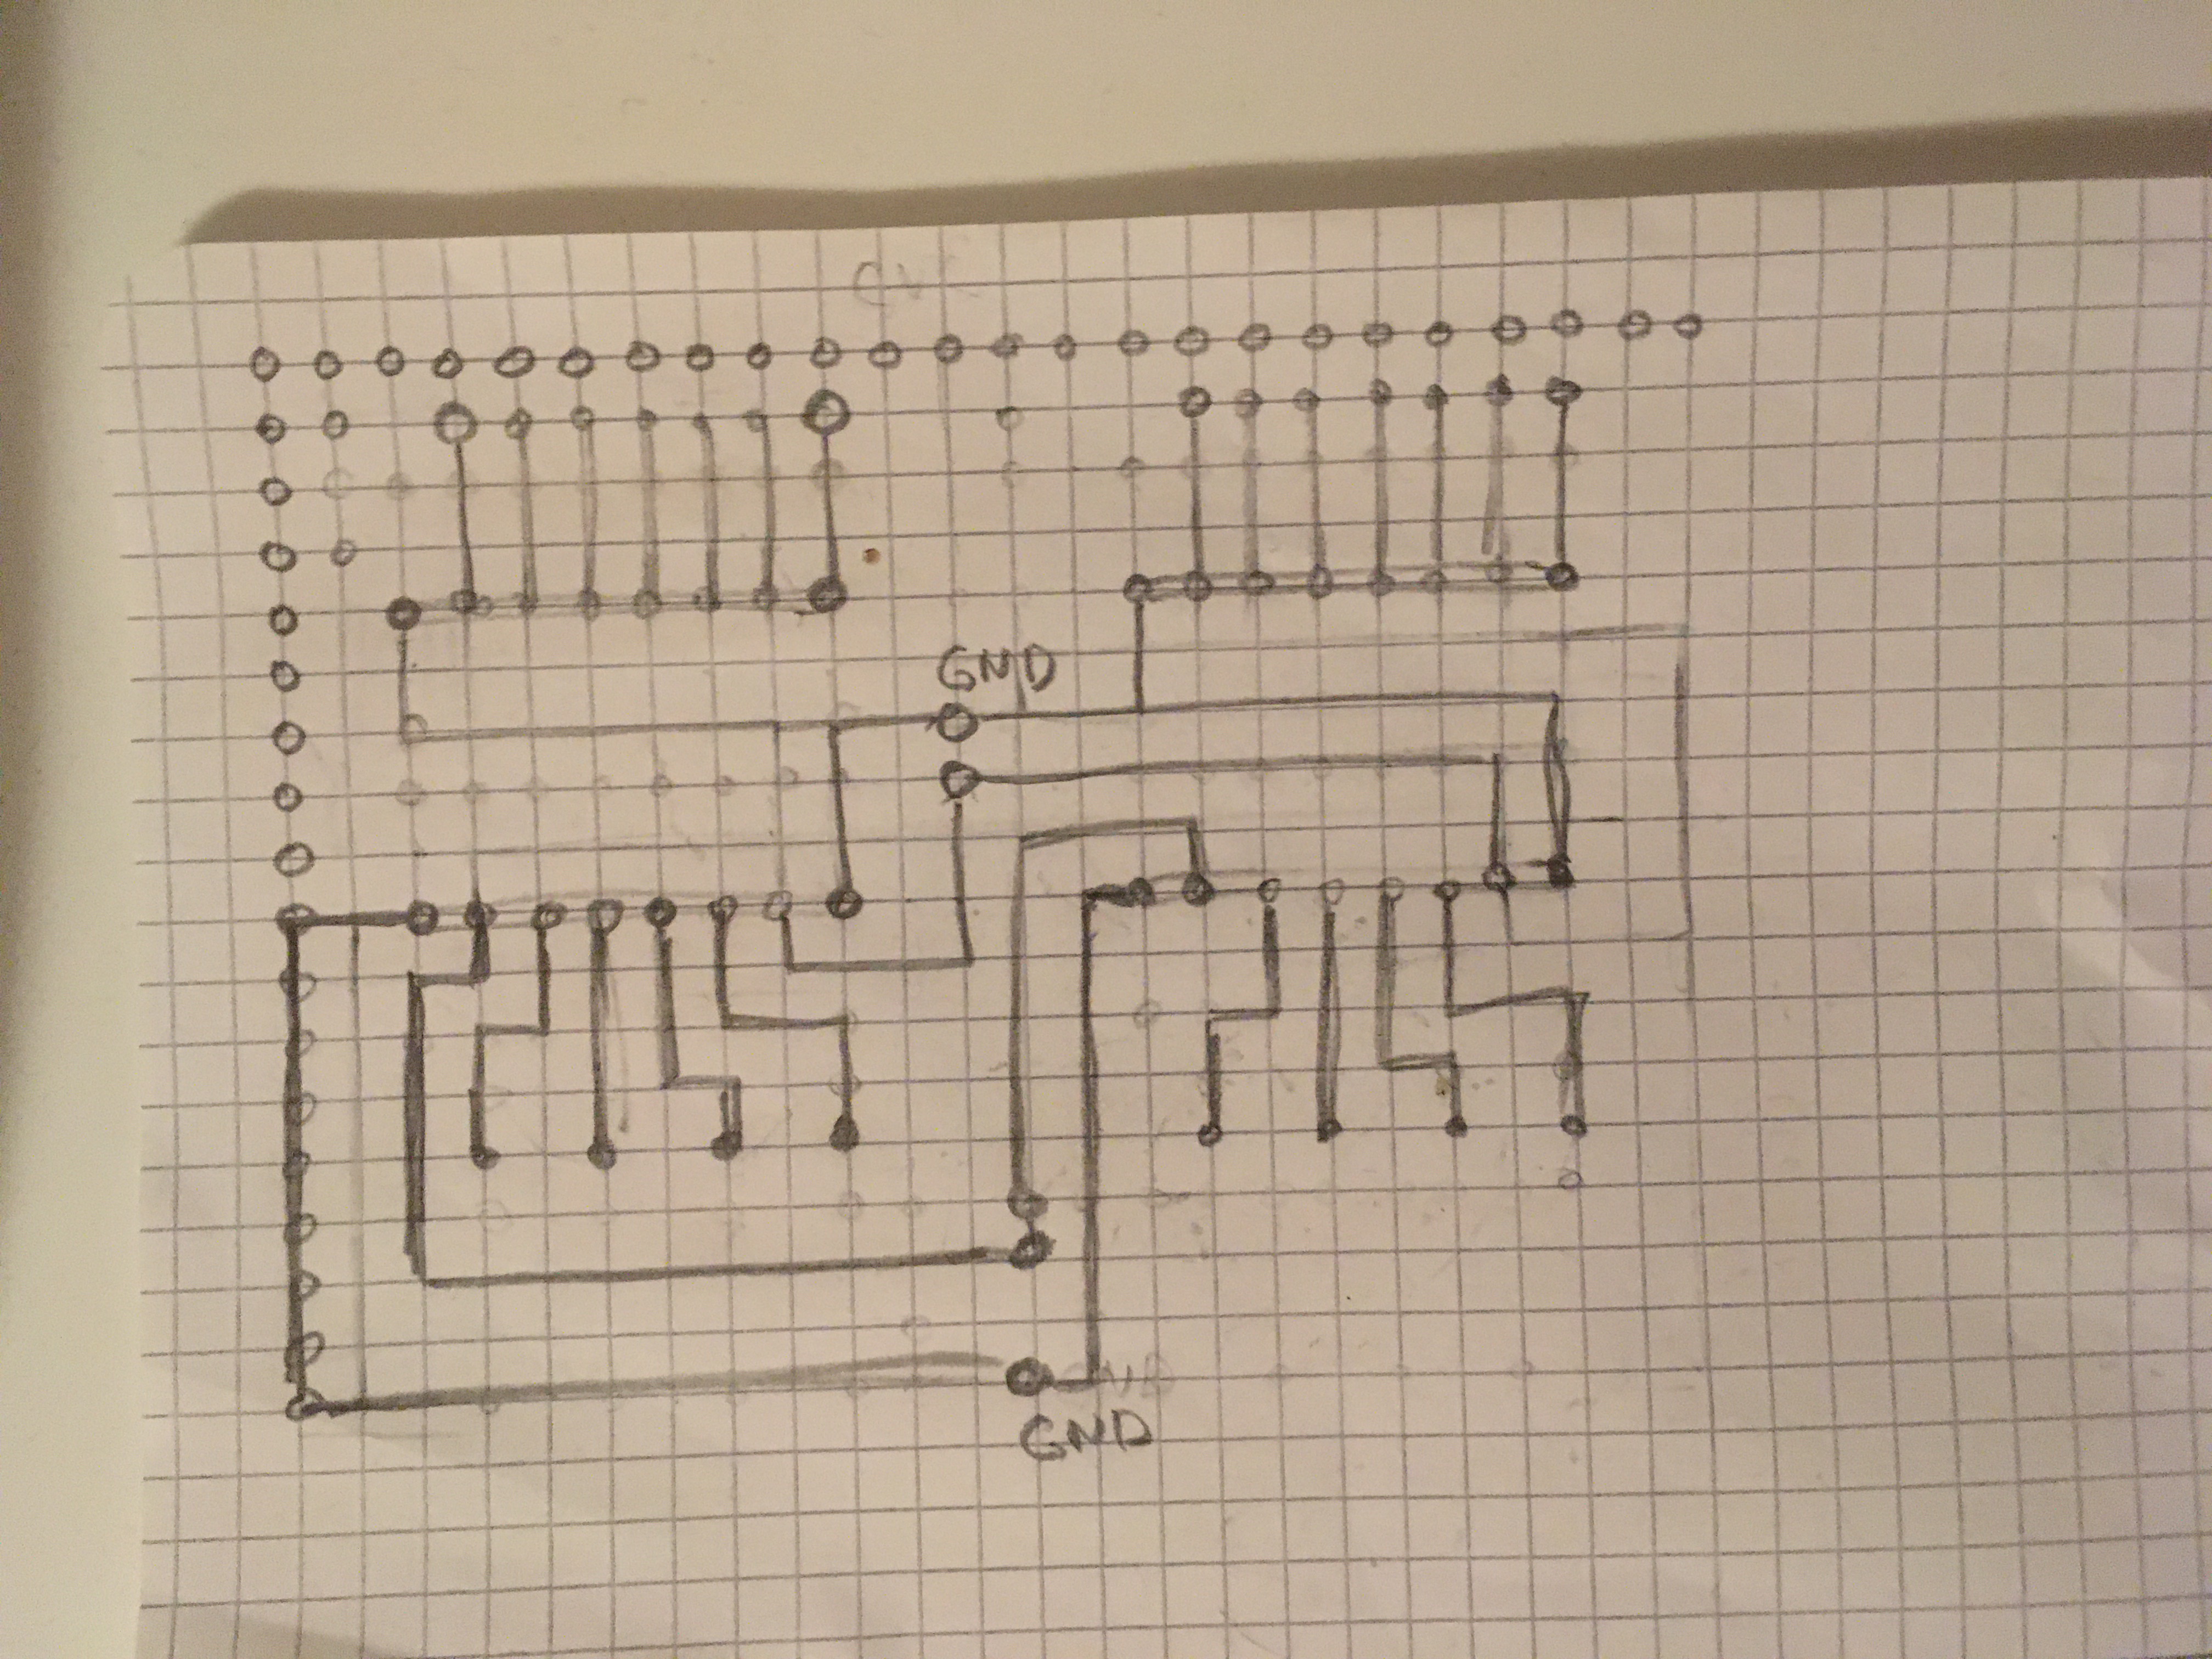 GND
GND